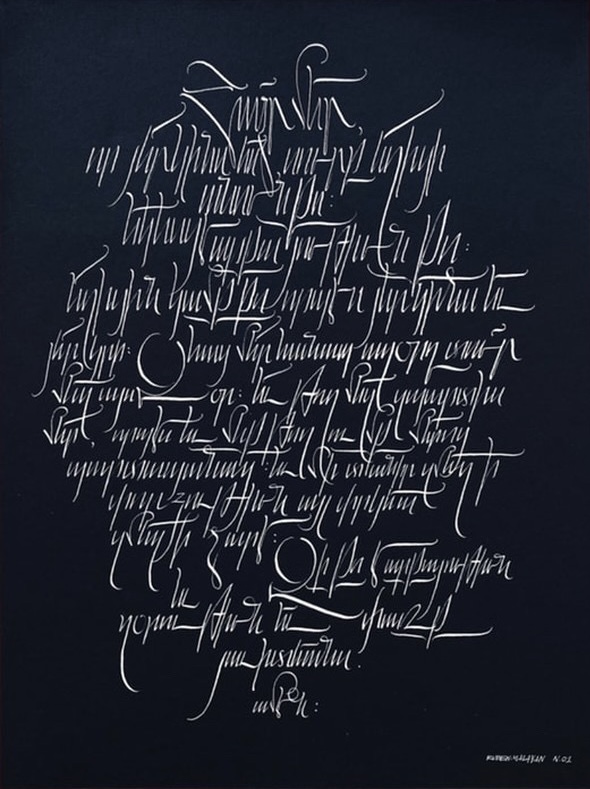 Հայր մեր,
որ յերկինս ես, սուրբ եղիցի
անուն քո:
Եկեսցէ արքայութիւն քո:
Եղիցին կամք քո որպէս յերկինս եւ
յերկրի: Զհաց մեր հանապազորդ տուր
մեզ այսօր: եւ թող մեզ զպարտիս
մեր, որպէս եւ մեք թողումք մերոց
պարտապանաց: եւ մի տանիր զմեզ ի
փորձութիւն այլ փրկեա
զմեզ ի չարէ: Զի քո է արքայութիւն
եւ
զօրութիւն եւ փառք
յաւիտեանս.
ամէն:
RUBEN MALAYAN N.01